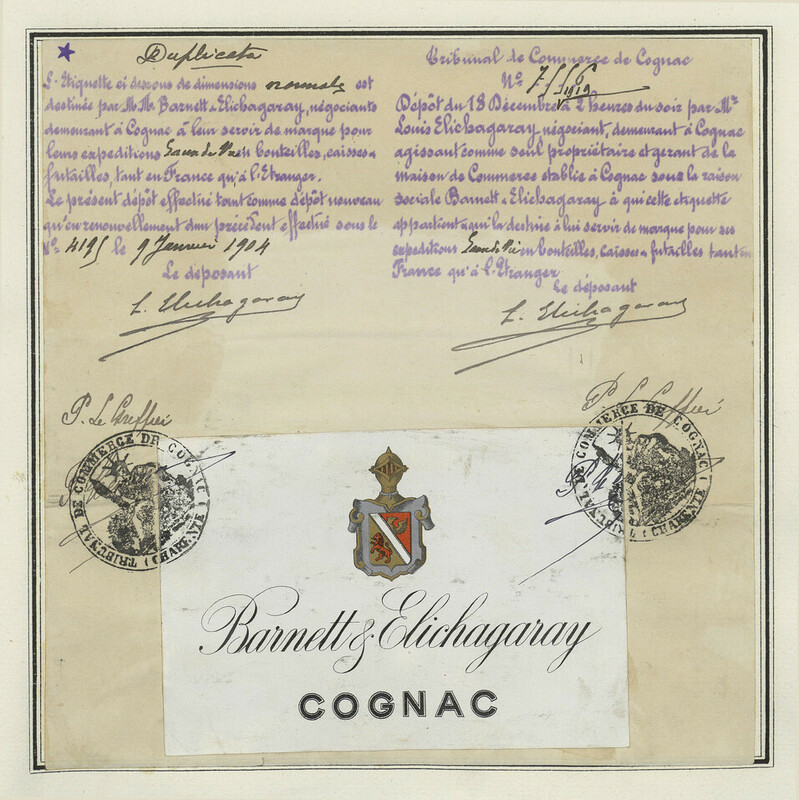 Duplicata
L'Etiquette ci dessous de dimensions normales est
destinée par M.M. Barnett & Elichagaray, négociants
demeurant à Cognac à leur servir de marque pour
leurs expeditions Eaux de Vie en bouteilles, caisses &
futailles, tant en France qu'à l'Etranger.
Le présent dépôt effectué tant comme dépôt nouveau
qu'en renouvellement d'un précédent effectué sous le
N° 4195 le 9 Janvier 1904
Le déposant
L. Elichagaray
P. Le Greffier
Tribunal de Commerce de Cognac
N°
1919
Dépôt du 18 Décembre à 2 heures du soir par Mr
Louis Elichagaray négociant, demeurant à Cognac
agissant comme seul propriétaire et gérant de la
maison de Commerce établie à Cognac sous la raison
sociale Barnett & Elichagaray à qui cette étiquette
appartient & qui la destine à lui servir de marque pour ses
expeditions Eaux de Vie en bouteilles, caisses & futailles tant en
France qu'à l'Etranger
Le déposant
L. Elichagaray
P. Le Greffier
TRIBUNAL DE COMMERCE DE COGNAC (CHARENTE)
TRIBUNAL DE COMMERCE DE COGNAC (CHARENTE)
Barnett & Elichagaray
COGNAC